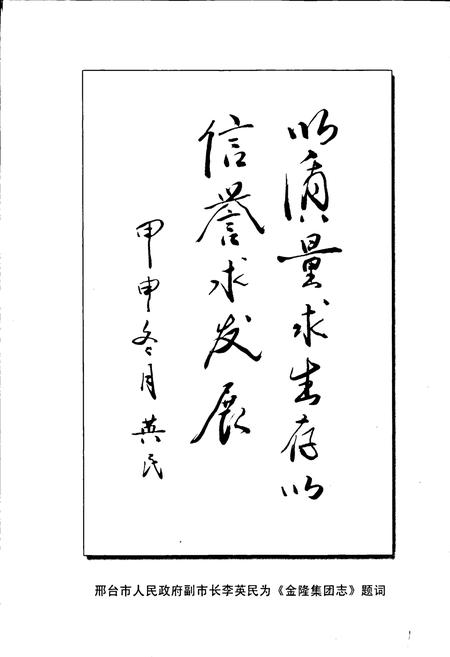 以质量求生存以
信誉求发展
甲申冬月 英民
邢台市人民政府副市长李英民为《金隆集团志》题词